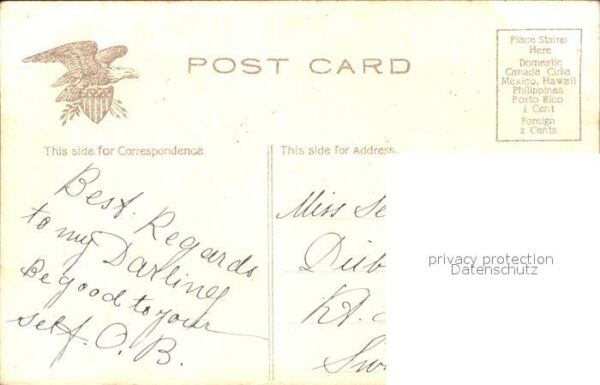 POST CARD
Place Stamp
Here
Domestic
Canada Cuba
Mexico, Hawaii
Philippines
Porto Rico
1 Cent
Foreign
2 Cents
This side for Correspondence.
This side for Address.
Best Regards
to my Darling
Be good to your
self. O. B.
Miss Se
Dub
Rt.
Sw
privacy protection
Datenschutz